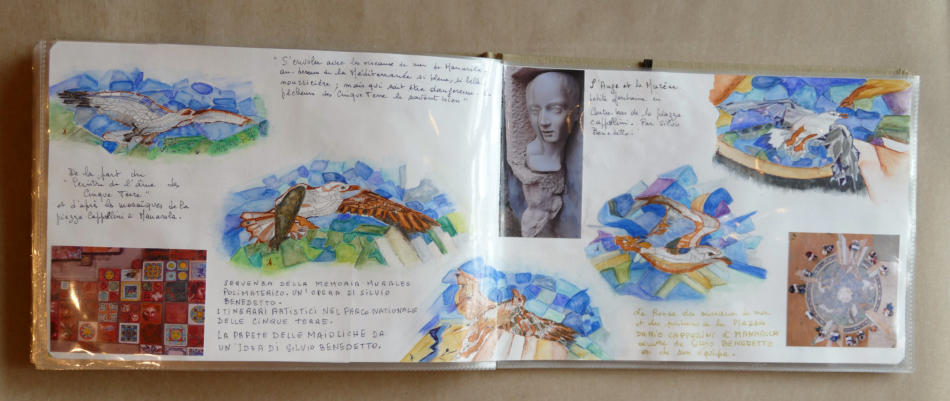 "S'envoler avec les oiseaux de mer de Manarola,
au-dessus de la Méditerranée si bleue, si belle
; mais qui sait être dangereuse
pêcheurs des Cinque Terre le savent bien"
De la part du
"Peintre de l'âme des
Cinque Terre"
et d'après les mosaïques de la
piazza Cappellini à Manarola.
SEQUENZA DELLA MEMORIA MURALES
POLIMATERICO. UN'OPERA DI SILVIO
BENEDETTO.
ITINERARI ARTISTICI NEL PARCO NAZIONALE
DELLE CINQUE TERRE.
LA PARETE DELLE MAIOLICHE DA
UN'IDEA DI SILVIO BENEDETTO.
L'Ange et la Murène
petite fontaine en
contre-bas de la piazza
Cappellini. Par Silvio
Benedetto.
La Ronde des oiseaux de mer
et des poissons à la PIAZZA
DARIO CAPPELLINI à MANAROLA
œuvre de SILVIO BENEDETTO
et de son équipe.